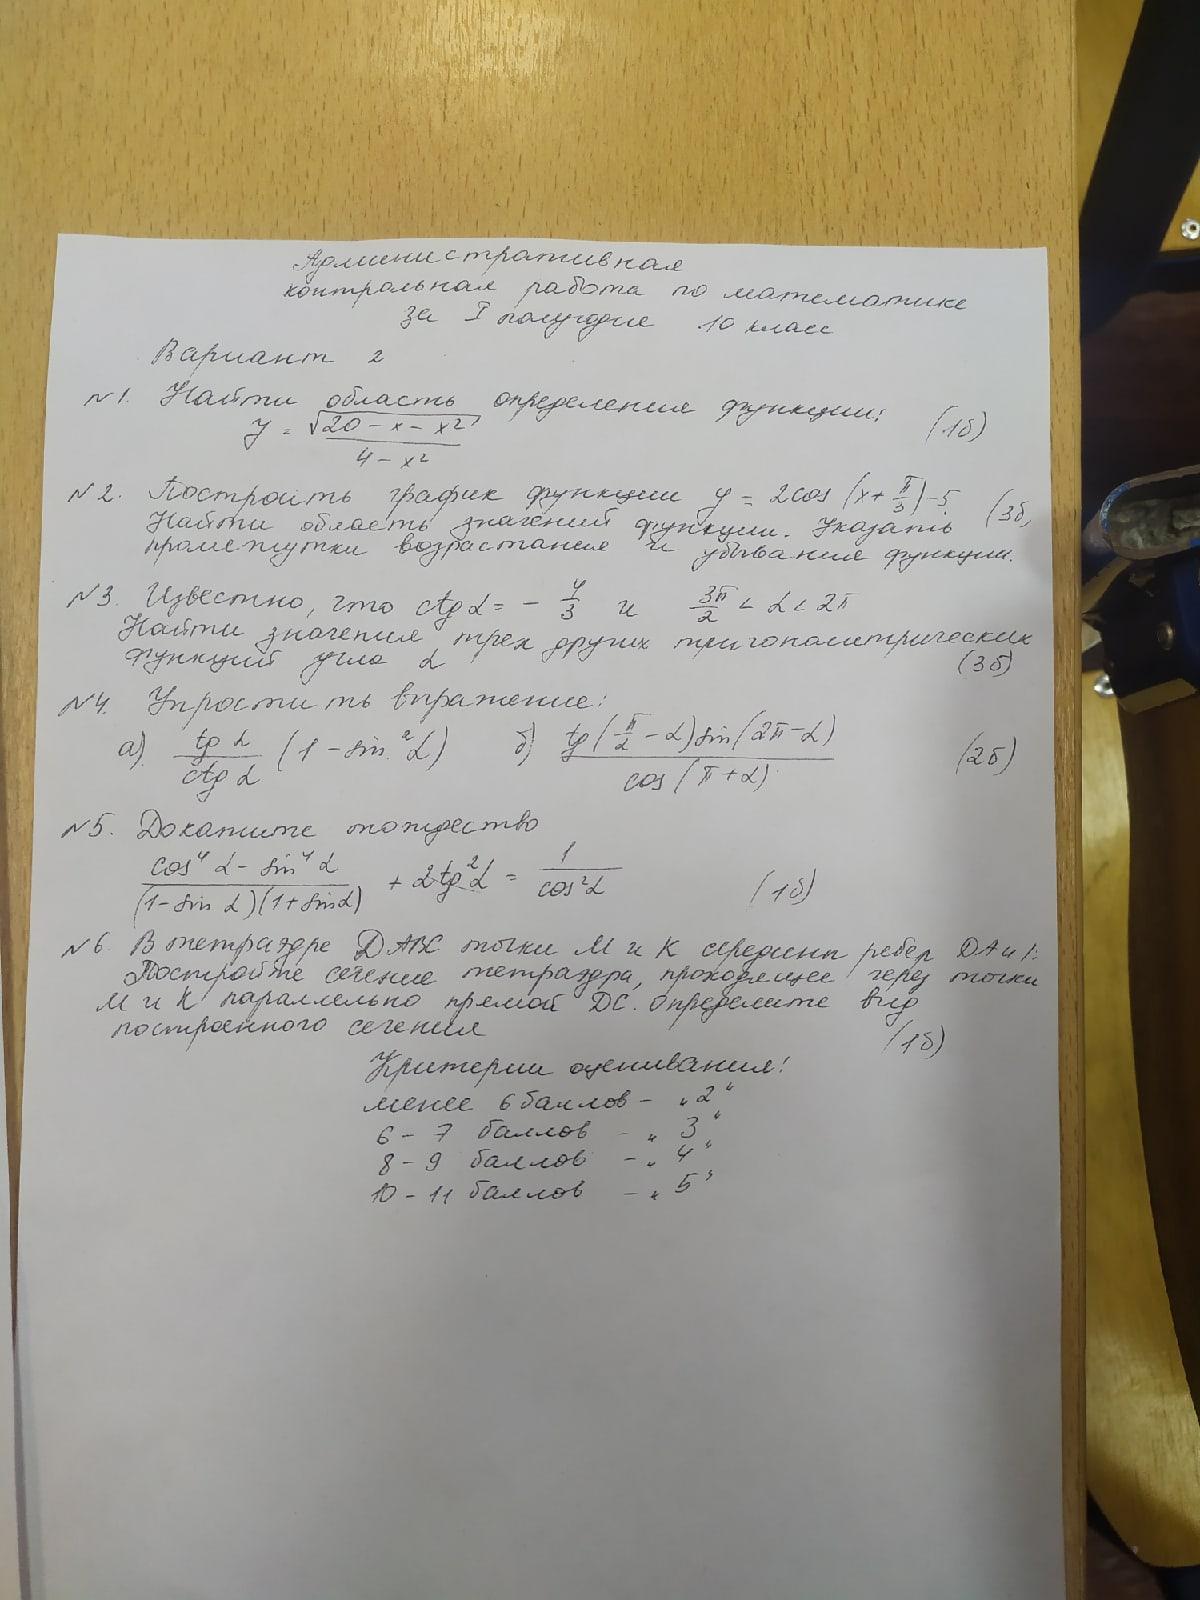 Административная
контрольная работа по математике
за I полугодие 10 класс
Вариант 2
№1. Найти область определения функции:
y = √(20 - x - x²) / (4 - x²) (1б)
№2. Построить график функции y = 2cos (x + π/3) - 5 (3б,
Найти область значений функции. Указать
промежутки возрастания и убывания функции.
№3. Известно, что ctg α = - 4/3 и 3π/2 < α < 2π
Найти значения трех других тригонометрических
функций угла α (3б)
№4. Упростить выражение:
а) tg α / ctg α (1 - sin² α) б) tg(π/2 - α) sin(2π - α) / cos(π + α) (2б)
№5. Докажите тождество
(cos⁴ α - sin⁴ α) / ((1 - sin α)(1 + sin α)) + 2tg² α = 1 / cos² α (1б)
№6. В тетраэдре DABC точки M и K середины ребер DA и
Постройте сечение тетраэдра, проходящее через точки
M и K параллельно прямой DC. Определите вид
построенного сечения (1б)
Критерии оценивания:
менее 6 баллов - "2"
6 - 7 баллов - "3"
8 - 9 баллов - "4"
10 - 11 баллов - "5"